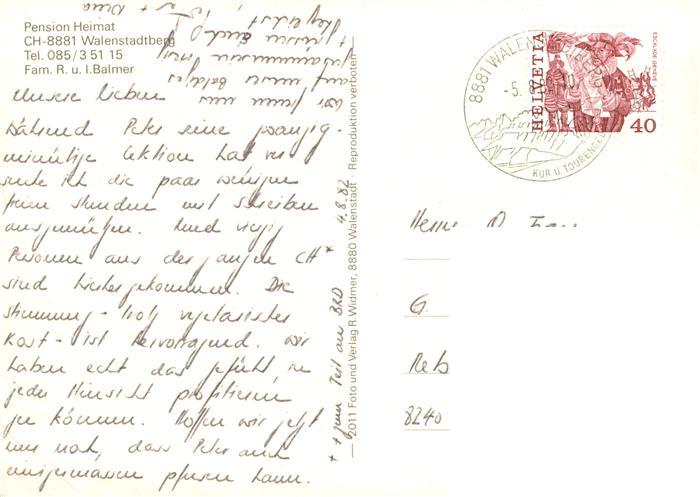 Pension Heimat
CH-8881 Walenstadtberg
Tel. 085/3 51 15
Fam. R. u. I. Balmer
Unsere lieben
Während Peter eine zwanzig-
minütige Lektion hat ver
suche ich die paar wenigen
freien Stunden mit schreiben
auszunützen. Rund vierzig
Personen aus der ganzen CH*
sind hierher gekommen. Die
Stimmung - trotz vegetarischer
Kost - ist hervorragend. Wir
haben echt das Gefühl in
jeder Hinsicht profitieren
zu können. Hoffen wir jetzt
nur noch, dass Peter auch
einigermassen pfusen kann.
wir freuen uns
auf unser baldiges
Zusammensein mit
Euch
+ zum Teil aus BRD
4.8.82
2011 Foto und Verlag R. Widmer, 8880 Walenstadt - Reproduktion verboten
8881 WALENSTADTBERG
- 5. 8. 82
KUR U. TOURENGEBIET
HELVETIA
ESCALADE GENEVE
40
Herrn
G.
Reb
8240